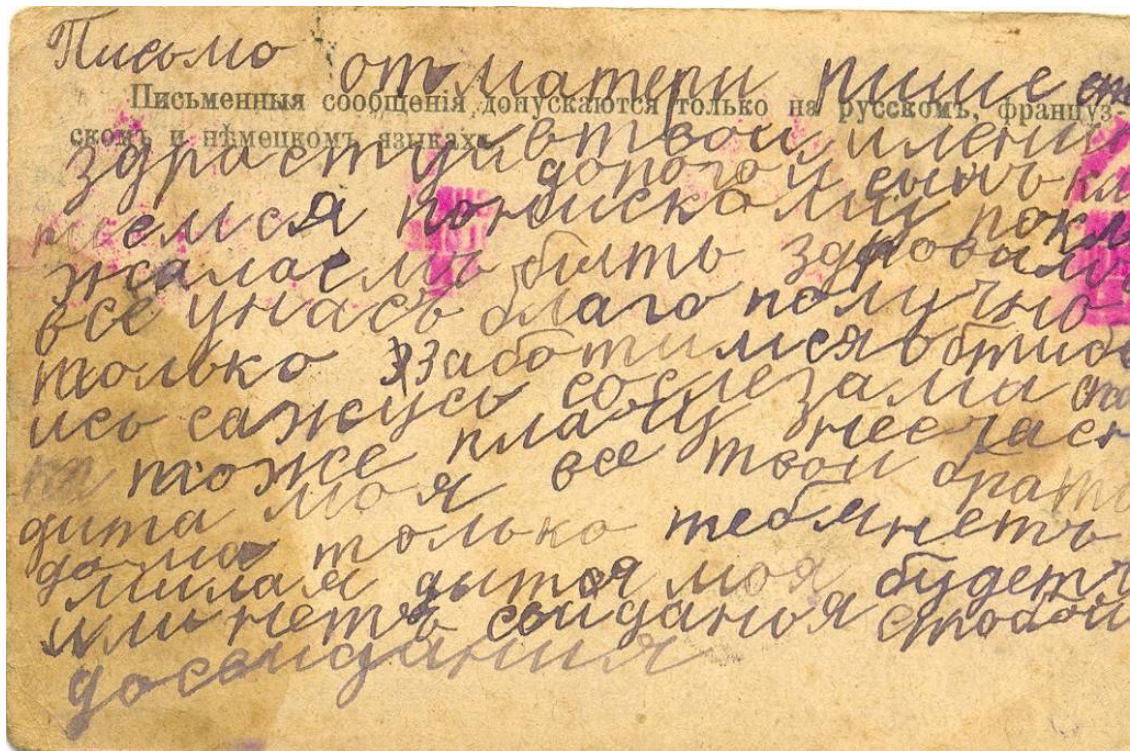 Письмо от матери пише
Письменныя сообщенія допускаются только на русскомъ, француз-
скомъ и нѣмецкомъ языкахъ
здраствуй твои имени
дорогои сынъ кла
емся по нискаму покло
жалаемъ быть здровамъ
все унасъ благо получно
только заботимся обтибе
ись сажусь сослезами
тоже плачу несчасн
дита моя все твои братъ
дома только тебя нетъ
милая дытя моя будетъ
или нетъ свиданья стобой
досвидания